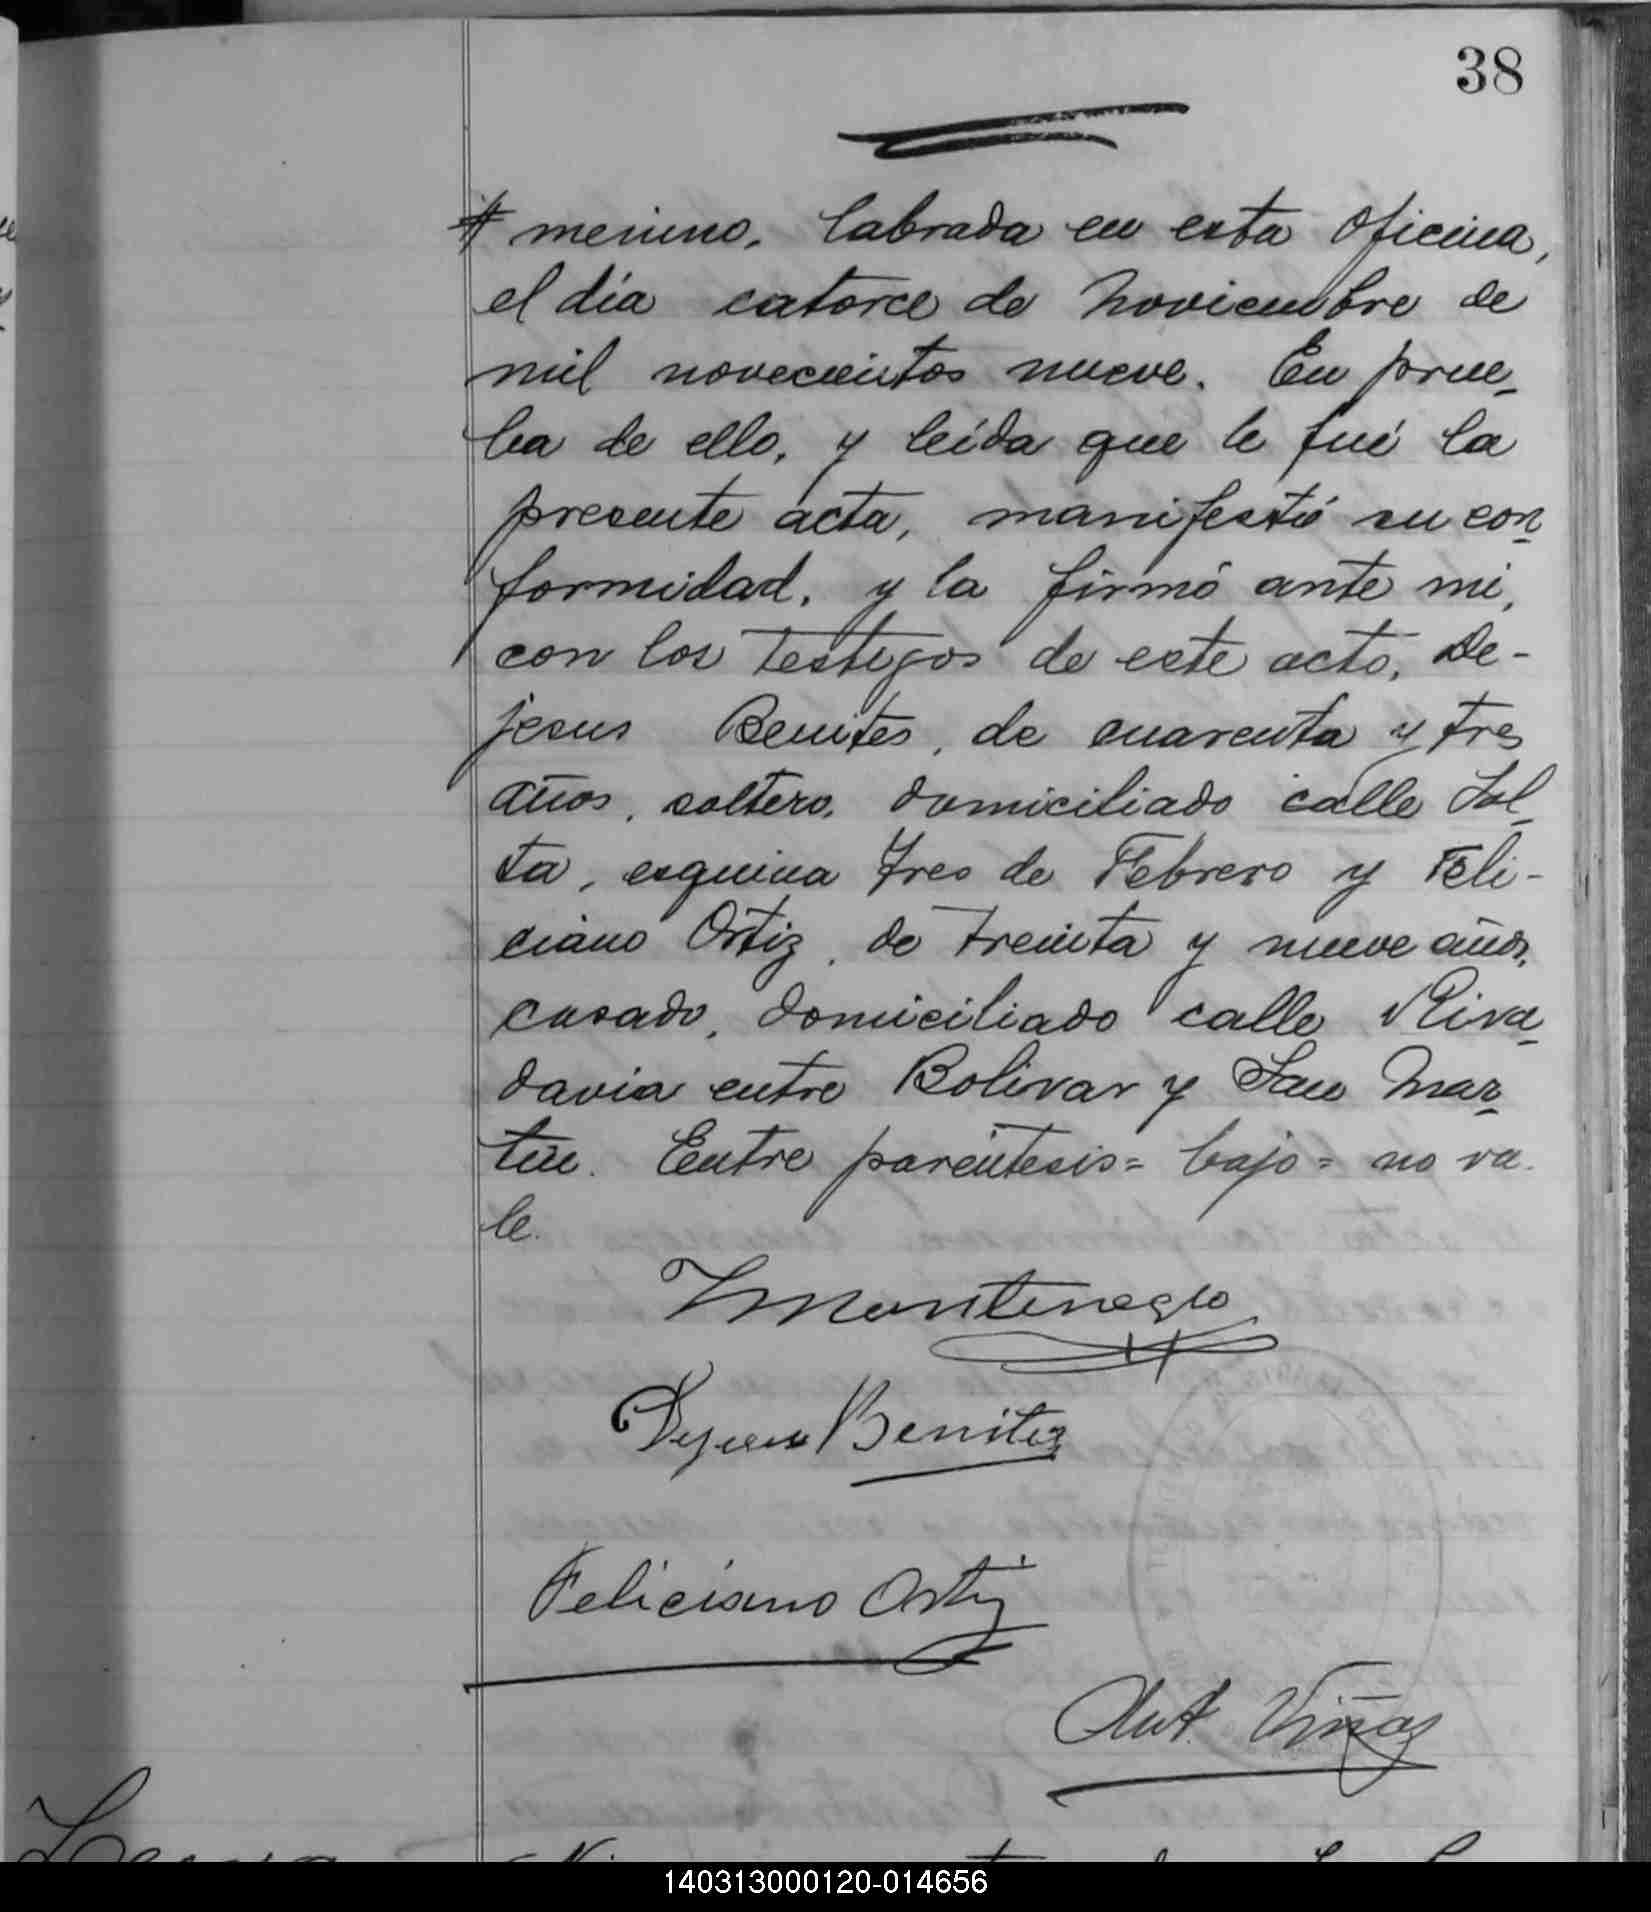 38
# menino, labrada en esta Oficina,
el día catorce de Noviembre de
mil novecientos nueve. En prue-
ba de ello, y leída que le fué la
presente acta, manifestó su con-
formidad, y la firmó ante mi,
con los testigos de este acto, De-
jesus Benites, de cuarenta y tres
años, soltero, domiciliado calle Sal-
ta, esquina Tres de Febrero y Feli-
ciano Ortiz, de treinta y nueve años,
casado, domiciliado calle Riva-
davia entre Bolivar y San Mar-
tín. Entre paréntesis = bajo = no va-
le.
Montenegro
Dejesus Benitez
Feliciano Ortiz
Ant. Viñas
140313000120-014656